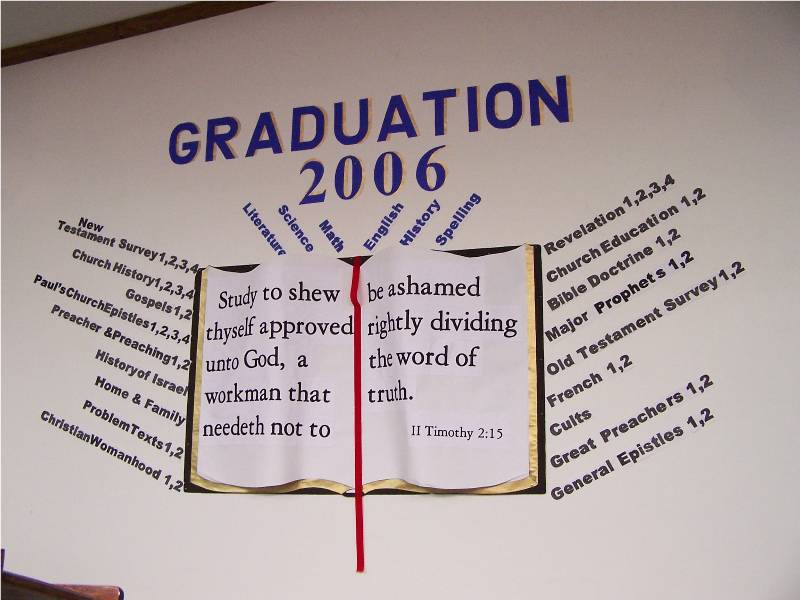 GRADUATION
2006
Literature
Science
Math
English
History
Spelling
New
Testament Survey 1,2,3,4
Church History 1,2,3,4
Gospels 1,2
Paul's Church Epistles 1,2,3,4
Preacher & Preaching 1,2
History of Israel
Home & Family
Problem Texts 1,2
Christian Womanhood 1,2
Study to shew
thyself approved
unto God, a
workman that
needeth not to
be ashamed
rightly dividing
the word of
truth.
II Timothy 2:15
Revelation 1,2,3,4
Church Education 1,2
Bible Doctrine 1,2
Major Prophets 1,2
Old Testament Survey 1,2
French 1,2
Cults
Great Preachers 1,2
General Epistles 1,2